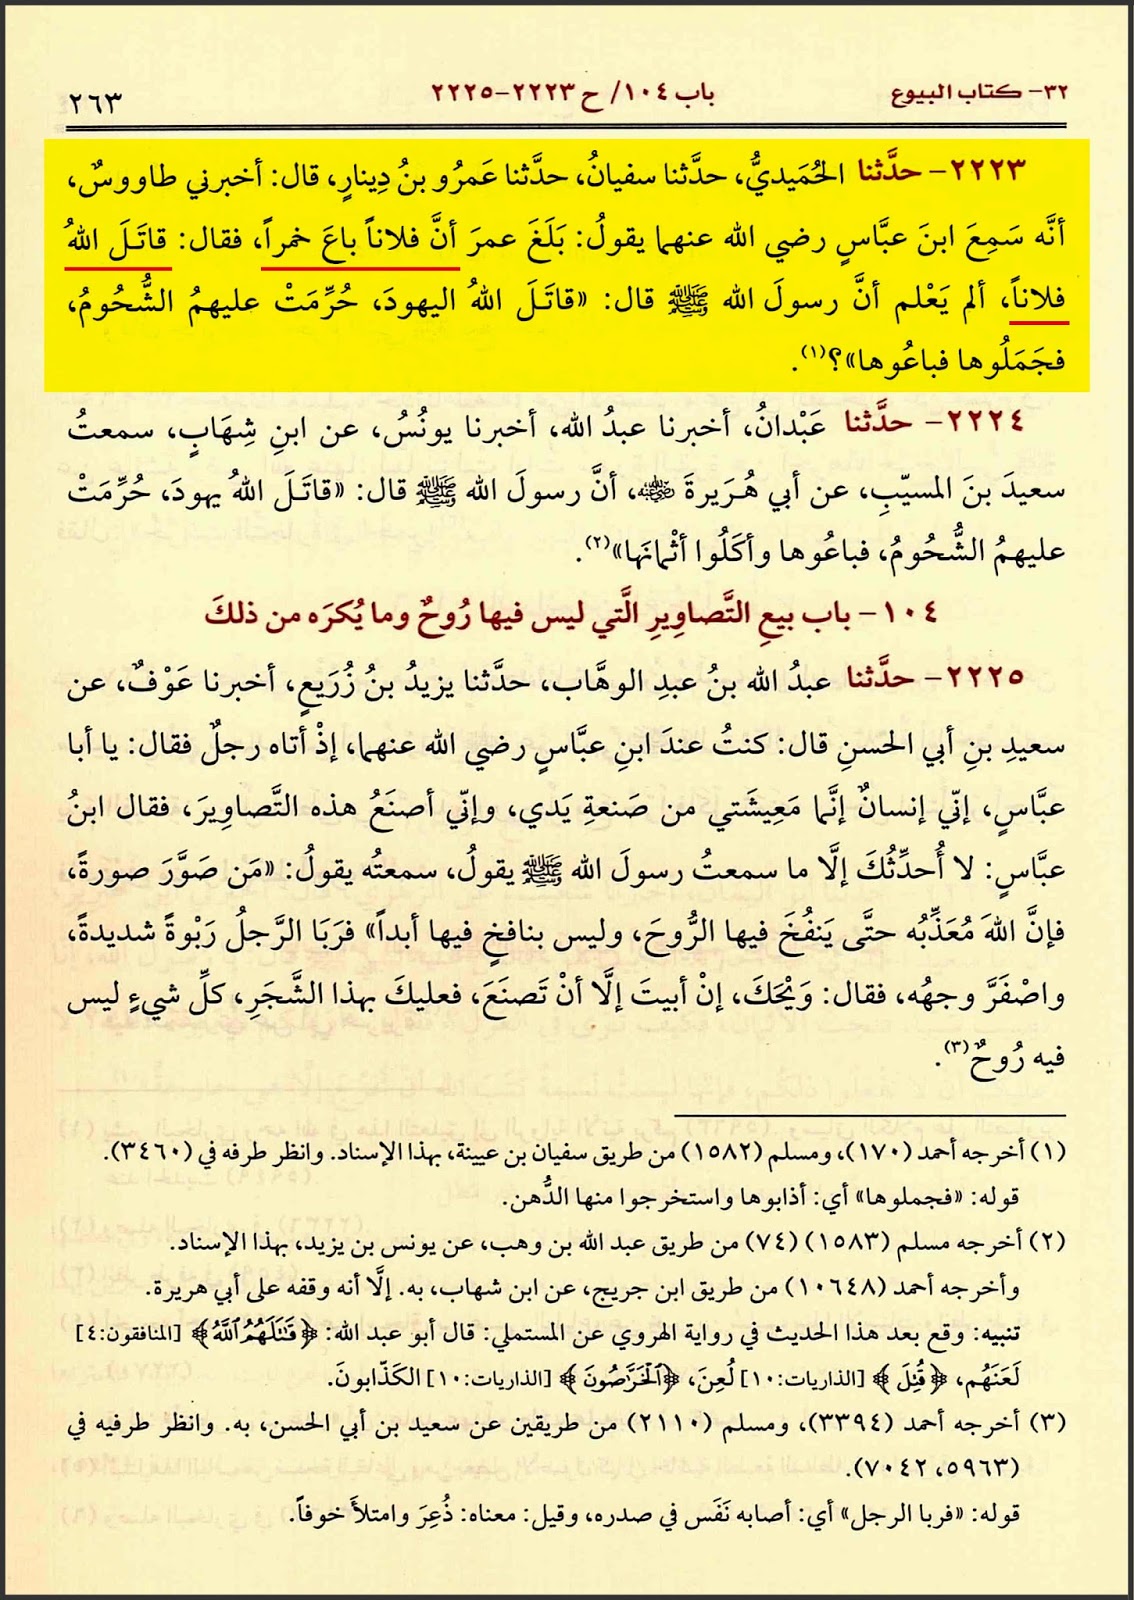 ٣٢- كتاب البيوع باب ١٠٤/ ح ٢٢٢٣-٢٢٢٥ ٢٦٣
٢٢٢٣- حدَّثنا الحُمَيديُّ، حدَّثنا سفيانُ، حدَّثنا عَمرُو بنُ دِينارٍ، قال: أخبرني طاووسٌ،
أنَّه سَمِعَ ابنَ عبَّاسٍ رضي الله عنهما يقولُ: بَلَغَ عمرَ أنَّ فلاناً باعَ خمراً، فقال: قاتَلَ اللهُ
فلاناً، ألم يَعْلم أنَّ رسولَ الله ﷺ قال: «قاتَلَ اللهُ اليهودَ، حُرِّمَتْ عليهمُ الشُّحُومُ،
فجَمَلُوها فباعُوها»؟(١).
٢٢٢٤- حدَّثنا عَبْدانُ، أخبرنا عبدُ الله، أخبرنا يونُسُ، عن ابنِ شِهَابٍ، سمعتُ
سعيدَ بنَ المسيّبِ، عن أبي هُرَيرةَ ﵁، أنَّ رسولَ الله ﷺ قال: «قاتَلَ اللهُ يهودَ، حُرِّمَتْ
عليهمُ الشُّحُومُ، فباعُوها وأكَلُوا أثْمانَها»(٢).
١٠٤- باب بيعِ التَّصاوِيرِ الَّتي ليس فيها رُوحٌ وما يُكرَه من ذلكَ
٢٢٢٥- حدَّثنا عبدُ الله بنُ عبدِ الوهَّاب، حدَّثنا يزيدُ بنُ زُرَيعٍ، أخبرنا عَوْفٌ، عن
سعيدِ بنِ أبي الحسنِ قال: كنتُ عندَ ابنِ عبَّاسٍ رضي الله عنهما، إذْ أتاه رجلٌ فقال: يا أبا
عبَّاسٍ، إنّي إنسانٌ إنَّما مَعِيشَتي من صَنعةِ يَدي، وإنّي أصنَعُ هذه التَّصاوِيرَ، فقال ابنُ
عبَّاسٍ: لا أُحدِّثُكَ إلَّا ما سمعتُ رسولَ الله ﷺ يقولُ، سمعتُه يقولُ: «مَن صَوَّرَ صورةً،
فإنَّ اللهَ مُعَذِّبُه حتَّى يَنفُخَ فيها الرُّوحَ، وليس بنافخٍ فيها أبداً» فرَبَا الرَّجلُ رَبْوةً شديدةً،
واصْفَرَّ وجهُه، فقال: وَيْحَكَ، إنْ أبيتَ إلَّا أنْ تَصنَعَ، فعليكَ بهذا الشَّجَرِ، كلِّ شيءٍ ليس
فيه رُوحٌ(٣).
(١) أخرجه أحمد (١٧٠)، ومسلم (١٥٨٢) من طريق سفيان بن عيينة، بهذا الإسناد. وانظر طرفه في (٣٤٦٠).
قوله: «فجملوها» أي: أذابوها واستخرجوا منها الدُّهن.
(٢) أخرجه مسلم (١٥٨٣) (٧٤) من طريق عبد الله بن وهب، عن يونس بن يزيد، بهذا الإسناد.
وأخرجه أحمد (١٠٦٤٨) من طريق ابن جريج، عن ابن شهاب، به. إلَّا أنه وقفه على أبي هريرة.
تنبيه: وقع بعد هذا الحديث في رواية الهروي عن المستملي: قال أبو عبد الله: ﴿قَٰتَلَهُمُ ٱللَّهُ﴾ [المنافقون:٤]
لَعَنَهُم، ﴿قُتِلَ﴾ [الذاريات:١٠] لُعِنَ، ﴿ٱلْخَرَّٰصُونَ﴾ [الذاريات:١٠] الكَذّابونَ.
(٣) أخرجه أحمد (٣٣٩٤)، ومسلم (٢١١٠) من طريقين عن سعيد بن أبي الحسن، به. وانظر طرفيه في
(٥٩٦٣، ٧٠٤٢).
قوله: «فربا الرجل» أي: أصابه نَفَس في صدره، وقيل: معناه: ذُعِرَ وامتلأَ خوفاً.